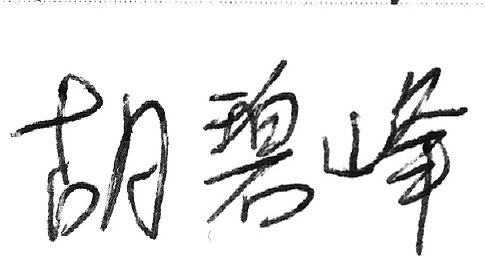 胡碧峰